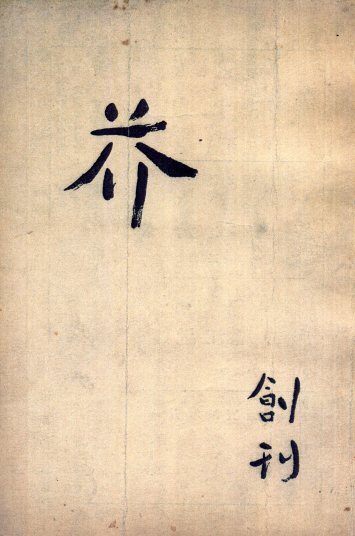 芥
創
刊